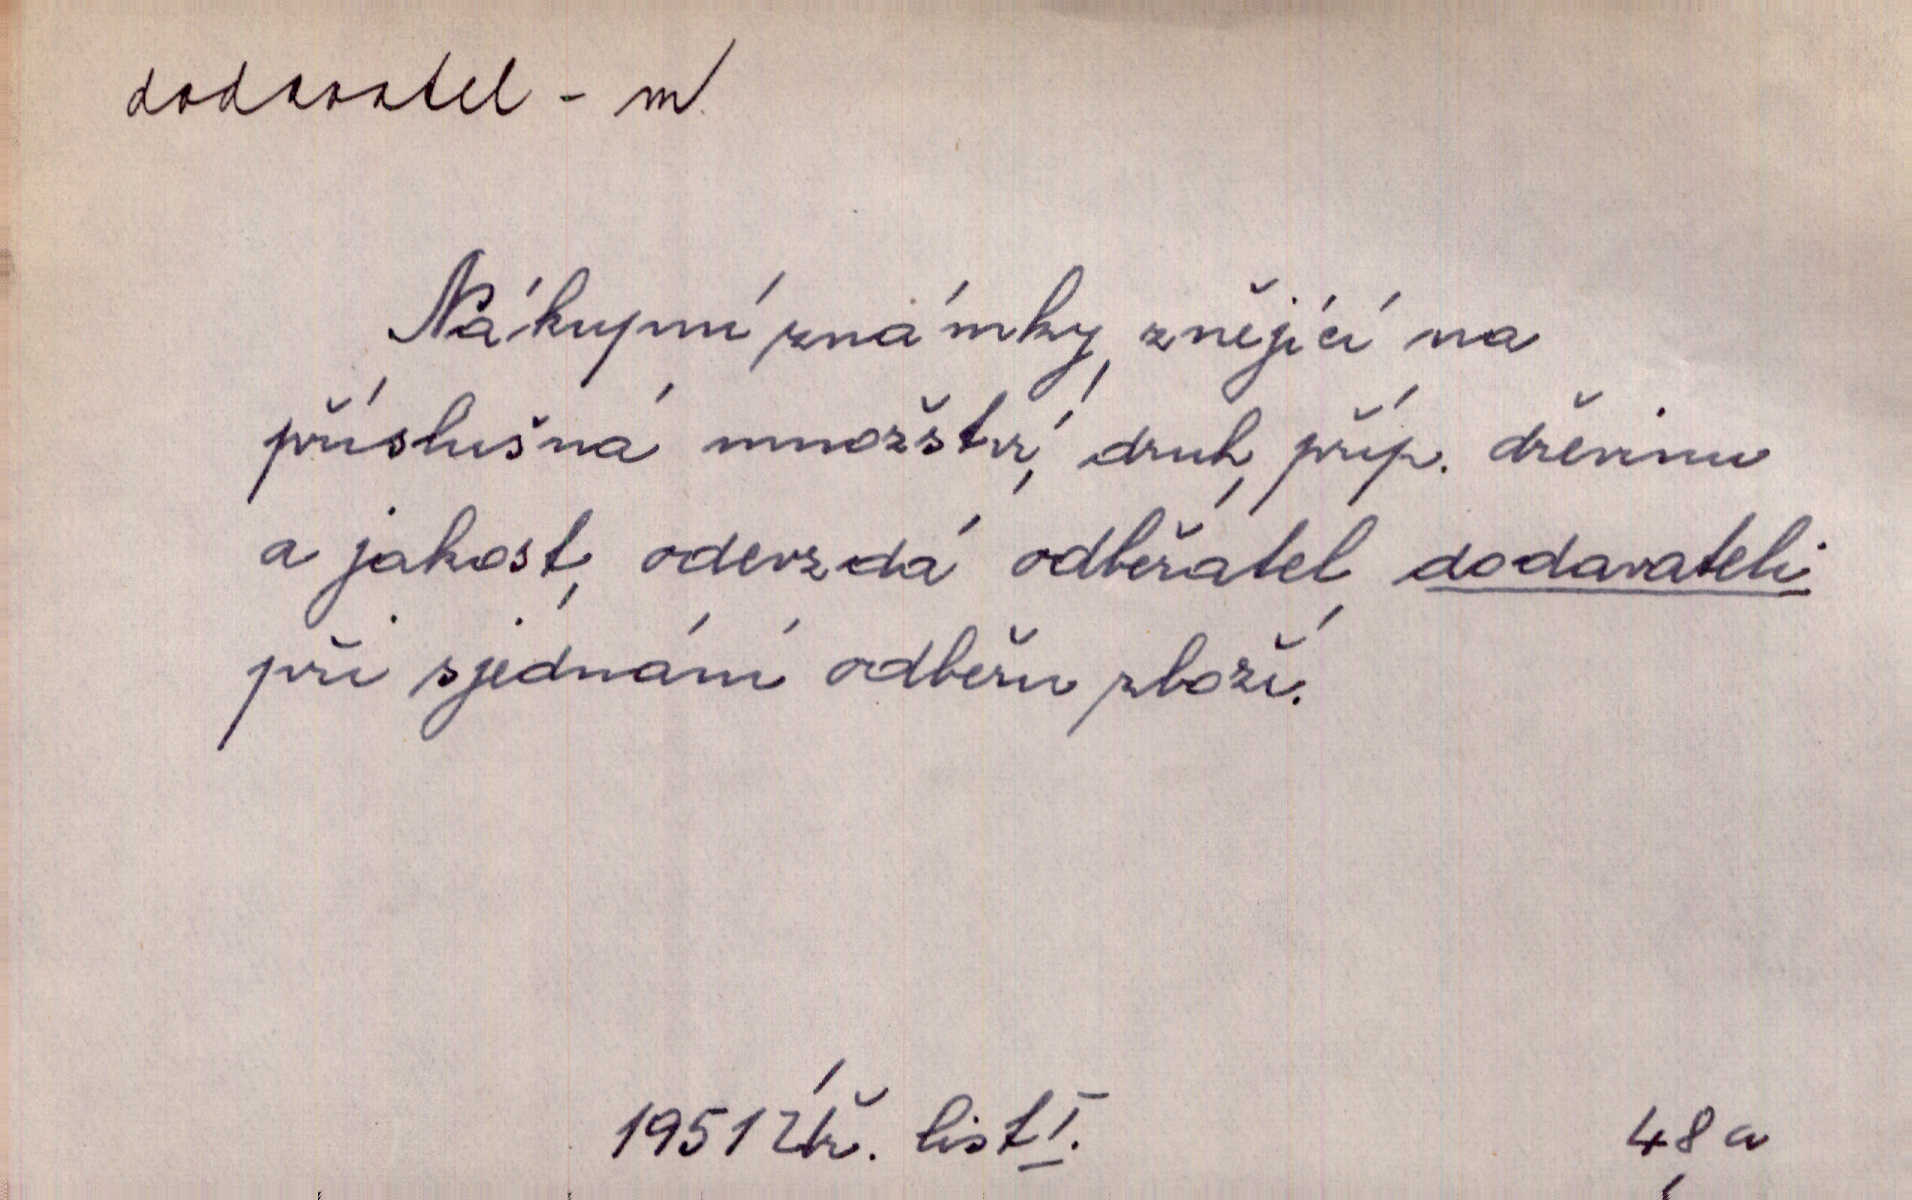 dodavatel - m
Nákupní známky, znějící na
příslušná množství, druh, příp. dřevinu
a jakost, odevzdá odběratel dodavateli
při sjednání odběru zboží.
1951 Úř. list I. 48a